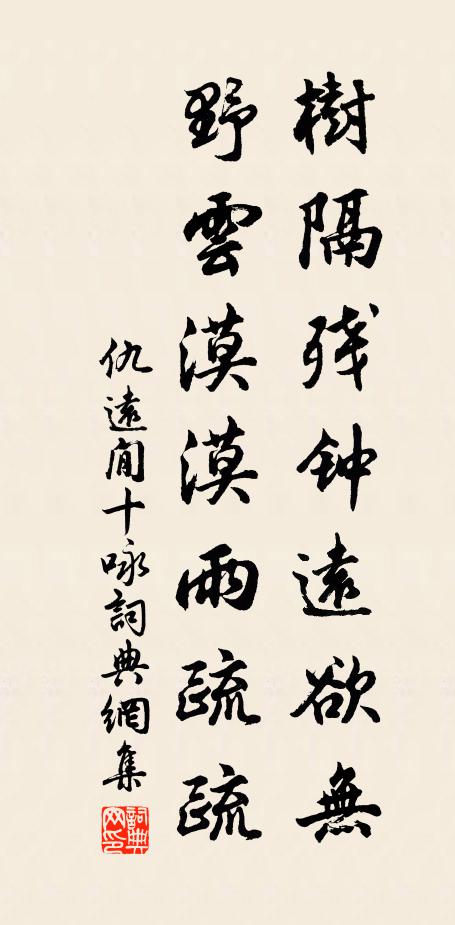 樹隔残钟遠欲無
野雲漠漠雨疏疏
仇遠閒十咏詞典網集
詞典网印